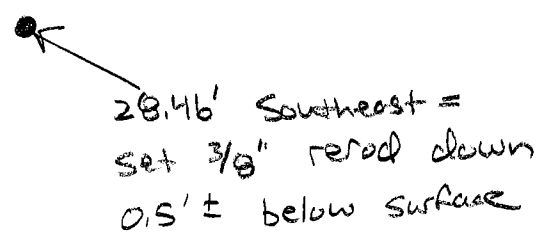 28.46' Southeast =
set 3/8" rerod down
0.5' ± below surface